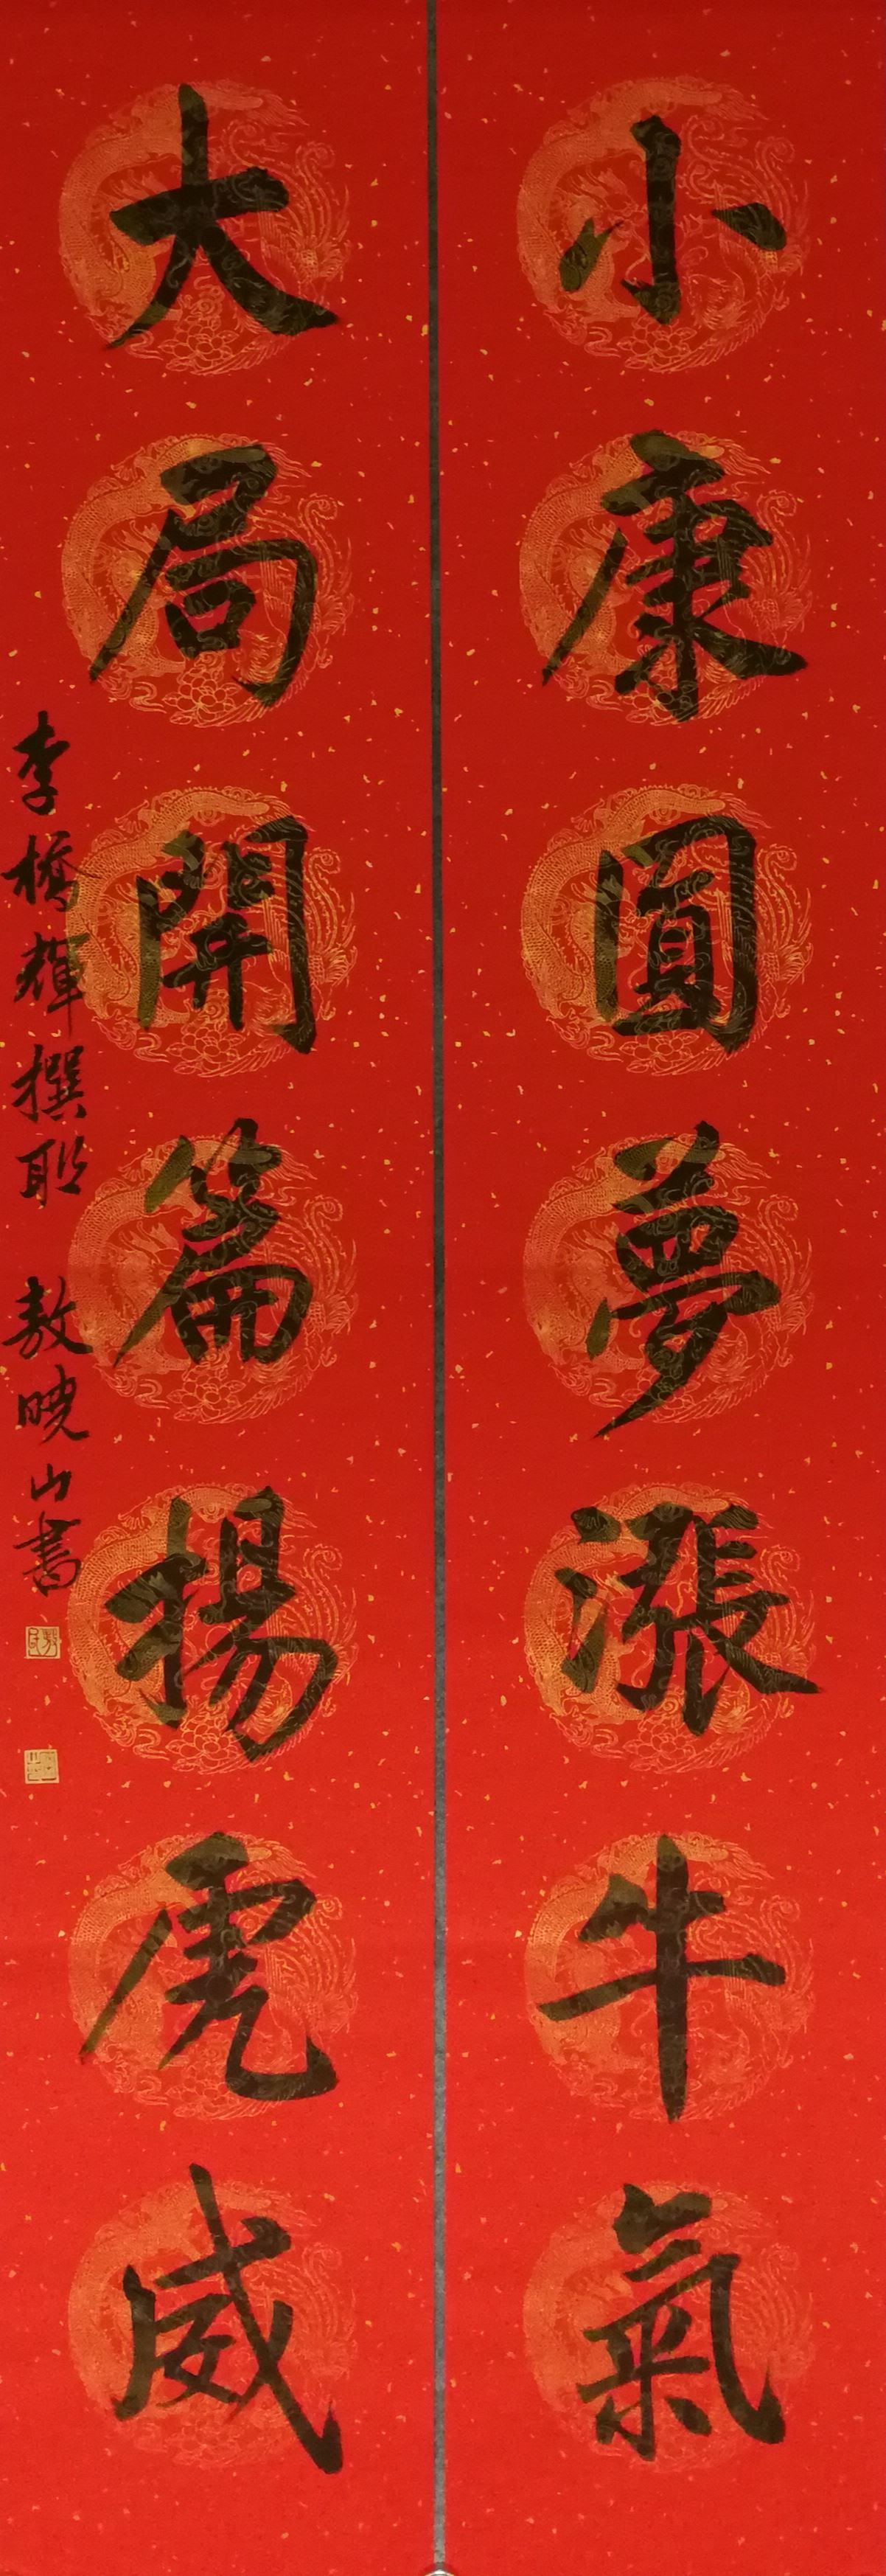 小康圓夢漲牛氣
大局開篇揚虎威
李橋輝撰联 敖曉山書